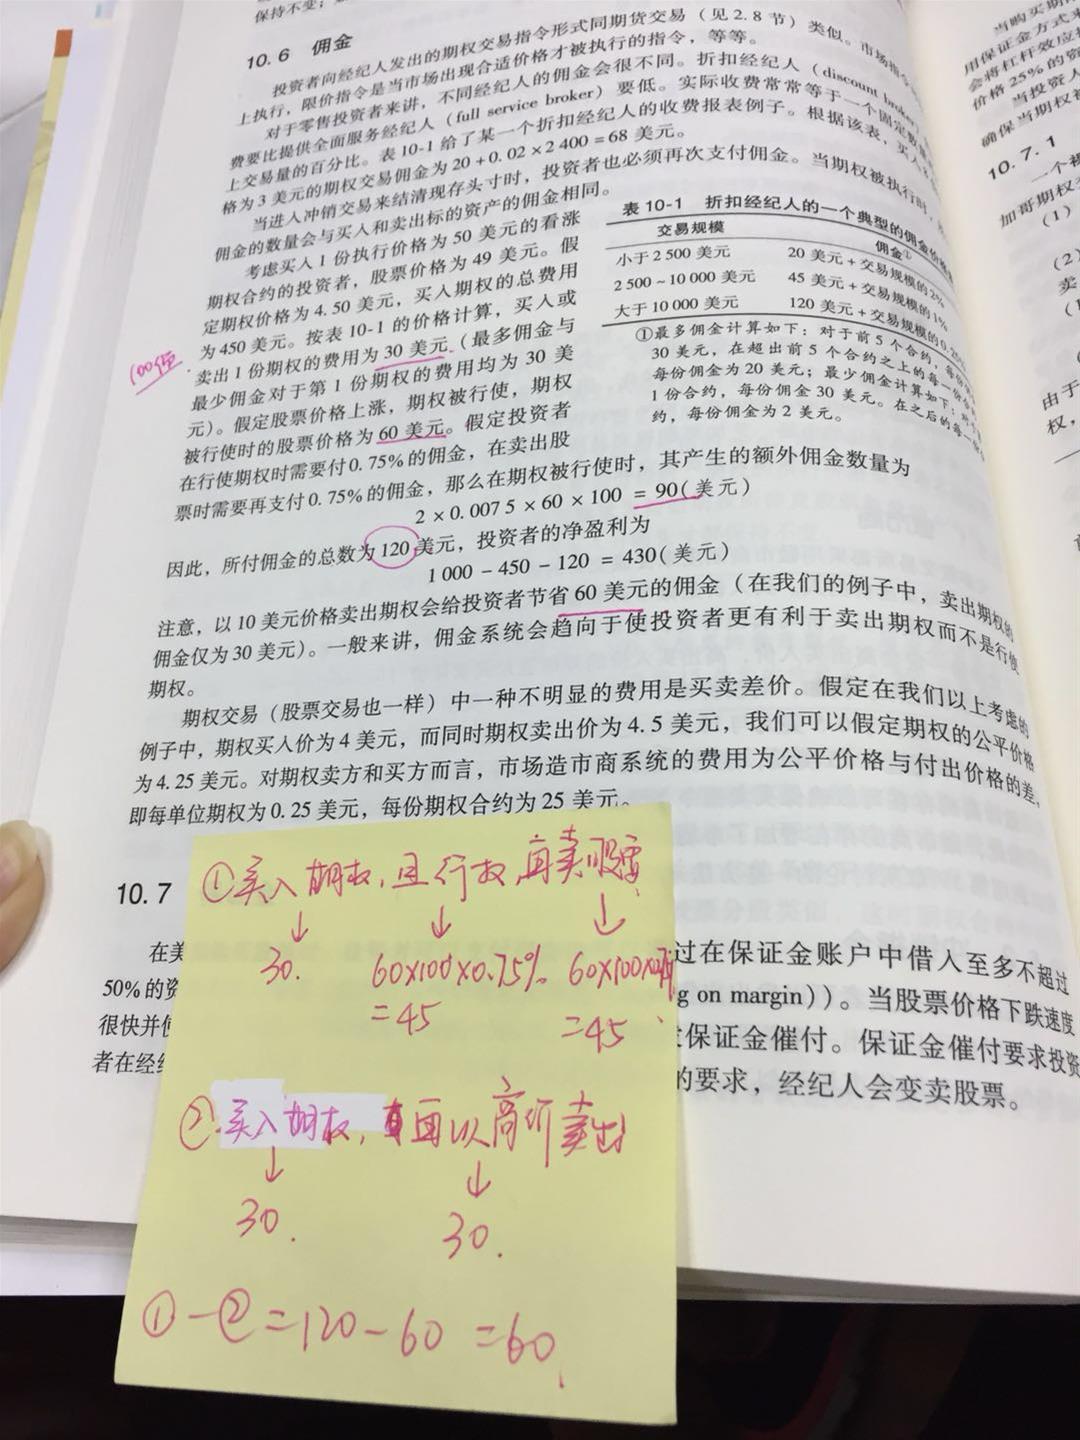 保持不变；
10.6 佣金
投资者向经纪人发出的期权交易指令形式同期货交易（见2.8节）类似。市场指令
上执行，限价指令是当市场出现合适价格才被执行的指令，等等。
对于零售投资者来讲，不同经纪人的佣金会很不同。折扣经纪人（discount broker）
费要比提供全面服务经纪人（full service broker）要低。实际收费常常等于一个固定数
上交易量的百分比。表10-1给了某一个折扣经纪人的收费报表例子。根据该表，买入
格为3美元的期权交易佣金为20+0.02×2 400=68美元。
当进入冲销交易来结清现存头寸时，投资者也必须再次支付佣金。当期权被执行时，
佣金的数量会与买入和卖出标的资产的佣金相同。
考虑买入1份执行价格为50美元的看涨
期权合约的投资者，股票价格为49美元。假
定期权价格为4.50美元，买入期权的总费用
为450美元。按表10-1的价格计算，买入或
卖出1份期权的费用为30美元（最多佣金与
最少佣金对于第1份期权的费用均为30美
元）。假定股票价格上涨，期权被行使，期权
被行使时的股票价格为60美元。假定投资者
在行使期权时需要付0.75%的佣金，在卖出股
票时需要再支付0.75%的佣金，那么在期权被行使时，其产生的额外佣金数量为
表10-1 折扣经纪人的一个典型的佣金价格
交易规模 佣金①
小于2 500美元 20美元+交易规模的2%
2 500~10 000美元 45美元+交易规模的1%
大于10 000美元 120美元+交易规模的0.25%
①最多佣金计算如下：对于前5个合约，每份
30美元，在超出前5个合约之上的每一份合
每份佣金为20美元；最少佣金计算如下：对
1份合约，每份佣金30美元。在之后的每一
约，每份佣金为2美元。
100倍
2×0.007 5×60×100=90（美元）
因此，所付佣金的总数为120美元，投资者的净盈利为
1 000-450-120=430（美元）
注意，以10美元价格卖出期权会给投资者节省60美元的佣金（在我们的例子中，卖出期权的
佣金仅为30美元）。一般来讲，佣金系统会趋向于使投资者更有利于卖出期权而不是行使
期权。
期权交易（股票交易也一样）中一种不明显的费用是买卖差价。假定在我们以上考虑的
例子中，期权买入价为4美元，而同时期权卖出价为4.5美元，我们可以假定期权的公平价格
为4.25美元。对期权卖方和买方而言，市场造市商系统的费用为公平价格与付出价格的差，
即每单位期权为0.25美元，每份期权合约为25美元。
10.7
在美
过在保证金账户中借入至多不超过
50%的资
g on margin））。当股票价格下跌速度
很快并使
保证金催付。保证金催付要求投资
者在经纪
的要求，经纪人会变卖股票。
①买入期权，且行权，再卖股票
↓ ↓ ↓
30. 60×100×0.75% 60×100×0.75%
=45 =45
②买入期权，再以高价卖出
↓ ↓
30. 30.
①-②=120-60=60.
当购买期
用保证金方式来
会将杠杆效应
价格25%的资
当投资人
确保当期权被
10.7.1
一个
加哥期权交
（1）
（2）
卖
由于
权，